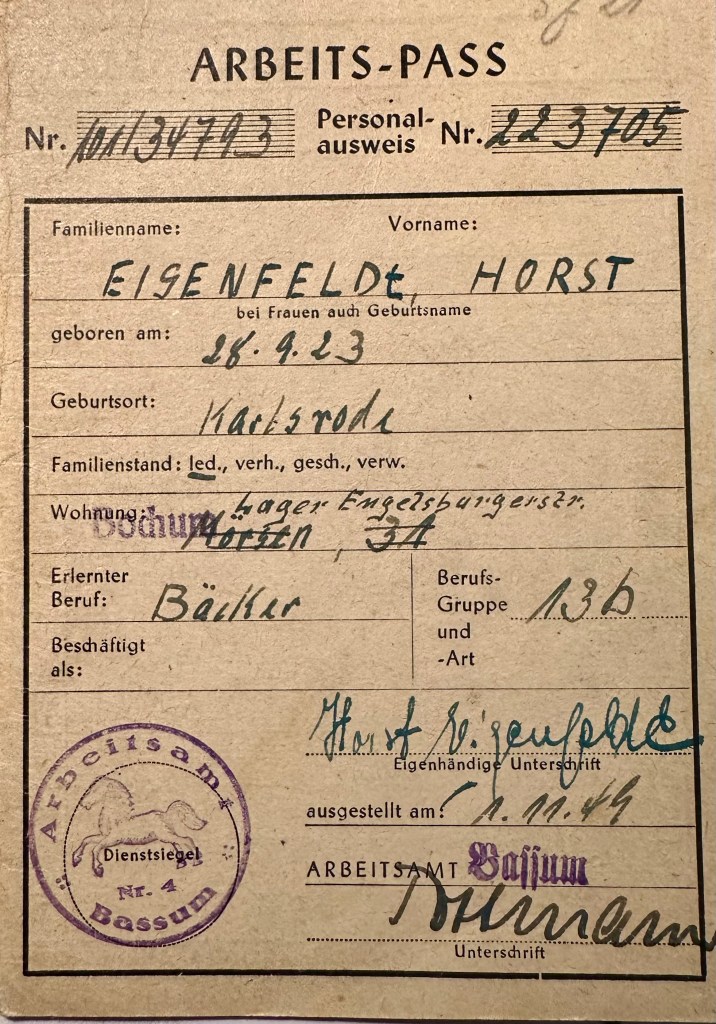 ARBEITS-PASS
Nr. 101/34793 Personal-
ausweis Nr. 223705
Familienname: Vorname:
EIGENFELDt, HORST
bei Frauen auch Geburtsname
geboren am: 28.9.23
Geburtsort: Karlsrode
Familienstand: led., verh., gesch., verw.
Wohnung: Lager Engelsburgerstr.
Bochum 31
Erlernter
Beruf: Bäcker
Berufs-
Gruppe 13b
und
-Art
Beschäftigt
als:
Horst Eigenfeldt
Eigenhändige Unterschrift
ausgestellt am: 1.11.49
ARBEITSAMT Bassum
Unterschrift
Arbeitsamt
Dienstsiegel
Nr. 4
Bassum